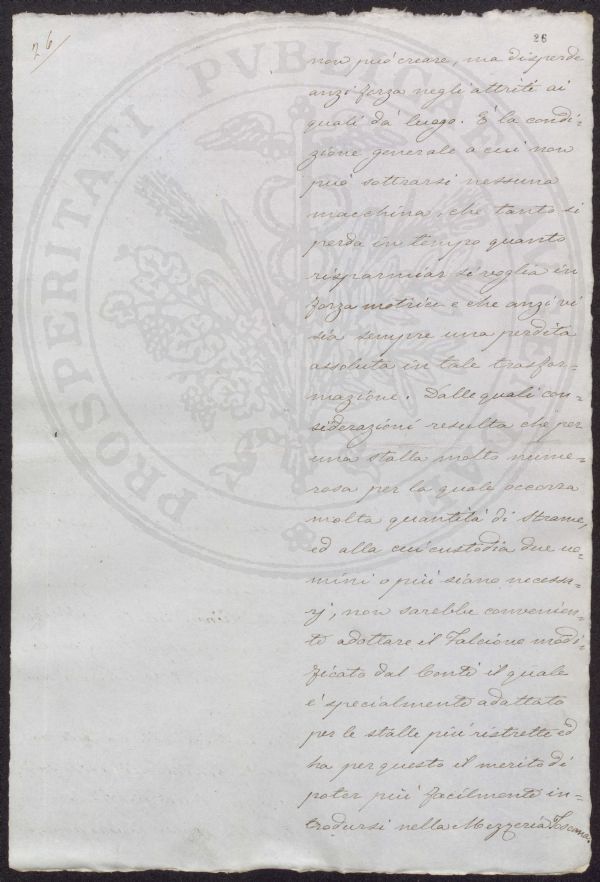 26
26
non può creare, ma disperde
anzi forza negli attriti ai
quali dà luogo. È la condi=
zione generale a cui non
può sottrarsi nessuna
macchina, che tanto si
perda in tempo quanto
risparmiar si voglia in
forza motrice e che anzi vi
sia sempre una perdita
assoluta in tale trasfor=
mazione. Dalle quali con=
siderazioni resulta che per
una stalla molto nume=
rosa per la quale occorra
molta quantità di strame,
ed alla cui custodia due uo=
mini o più siano necessa=
rj, non sarebbe convenien=
te adottare il Falcione modi=
ficato dal Conti il quale
è specialmente adattato
per le stalle più ristrette ed
ha per questo il merito di
poter più facilmente in=
trodursi nella Mezzeria Toscana.
PROSPERITATI PVBLICAE AVGENDAE